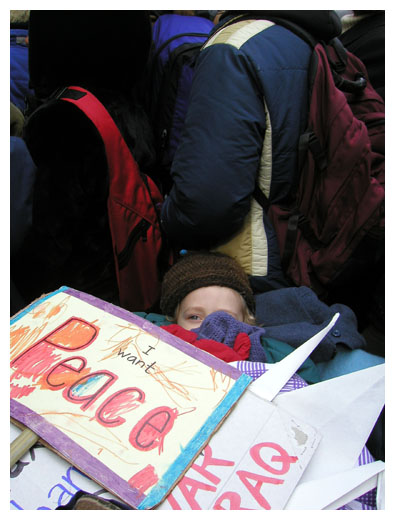 I
want
Peace
WAR
IRAQ